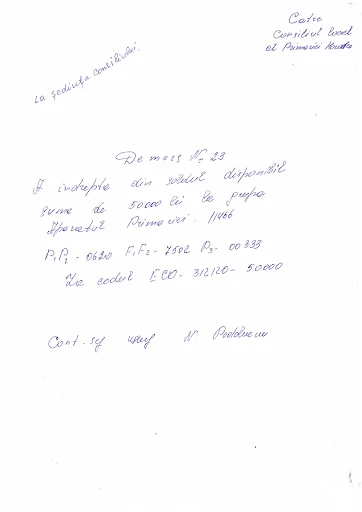 Catre
Consiliul local
al Primariei
La ședința consiliului.
Demers Nr 23
A indrepta din soldul disponibil
suma de 50000 lei la grupa
Aparatul Primariei. 11466
P1P2 - 0620 F1F2 - 7502 P3 - 00333
La codul ECO - 312120 - 50000
Cont-șef N